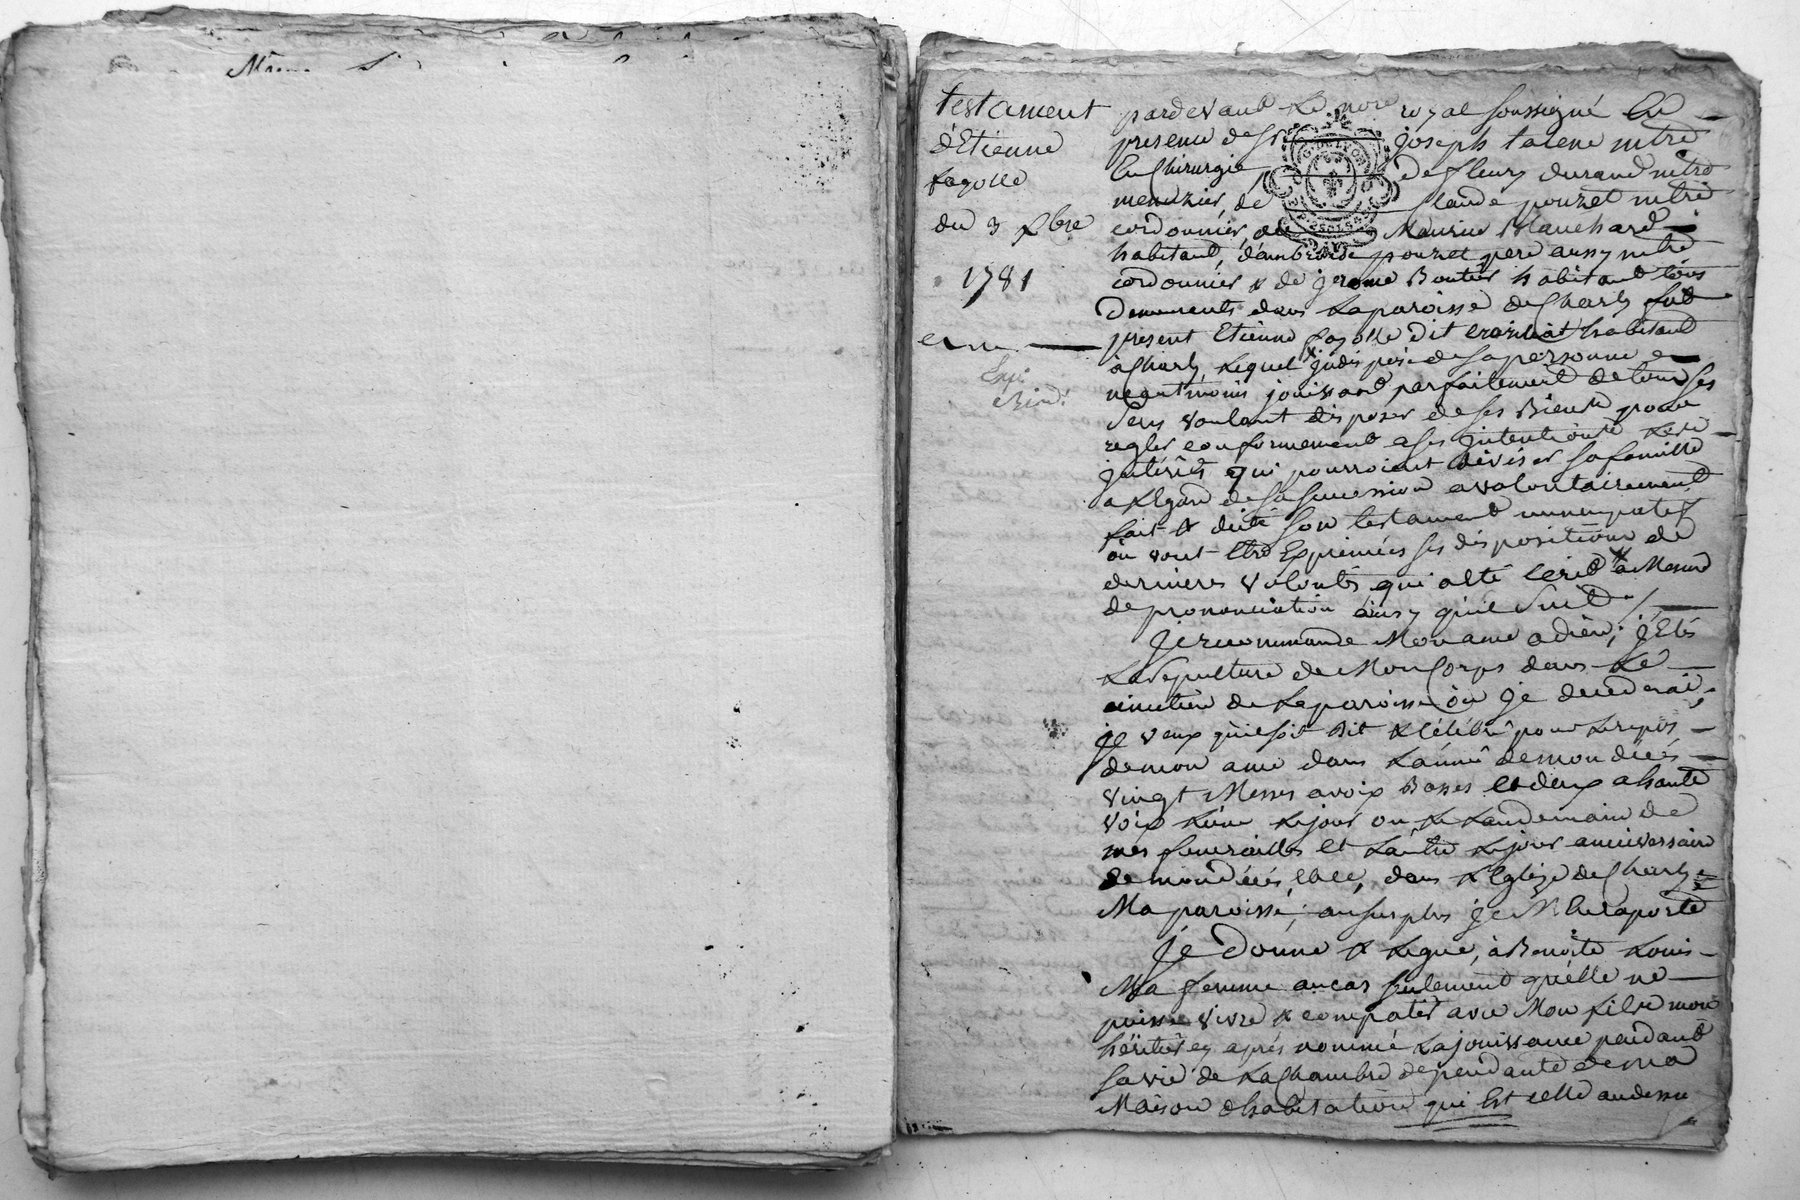 testament
d'Etienne
fayolle
du 3 xbre
1781
pardevant Le nore royal soussigné En
presence de Sr joseph tavene mtre
En Chirurgie, de fleury durand mtre
menuzier, de Claude pouzet mtre
cordonnier, de Maurice Blanchard
habitant, d'ambroise pouzet pere aussy mtre
cordonnier & de jerome Boutier habitant tous
demeurants dans La paroisse de Charly fut
present Etienne fayolle dit habitant
à Charly, Lequel jndisposé de sa personne
neantmoins jouissant parfaitement de tous ses
sens voulant disposer de ses Biens pour
regler conformement a ses jntentions Les
jnterêts qui pourroient diviser sa famille
a L'Egard de sa succession a volontairement
fait & dicté son testament nuncupatif
ou vont Etre Exprimées ses dispositions de
dernieres volontés qui a Eté Ecrit a Mesure
de prononciation ainsy qu'il suit /
je recommande Mon ame a dieu; j'Elis
La sepulture de Mon Corps dans Le
cimetiere de La paroisse ou je decederai;
je veux qu'il soit dit & Célébré pour Le repos
de mon ame dans L'année de mon décés
vingt Messes a voix Basses et deux a haute
voix L'une Le jour ou Le Landemain de
mes funerailles et L'autre Le jour anniversaire
de mon décés, Elle, dans L'Eglize de Charly
Ma paroisse; au surplus je M'En raporte
je donne & Legue, à Benoite Louis
Ma femme au cas seulement qu'elle ne
puisse vivre & compatir avec Mon fils mon
héritier cy aprés nommé La jouissance pendant
sa vie de La Chambre dependante de ma
Maison d'habitation qui Est celle au dessu